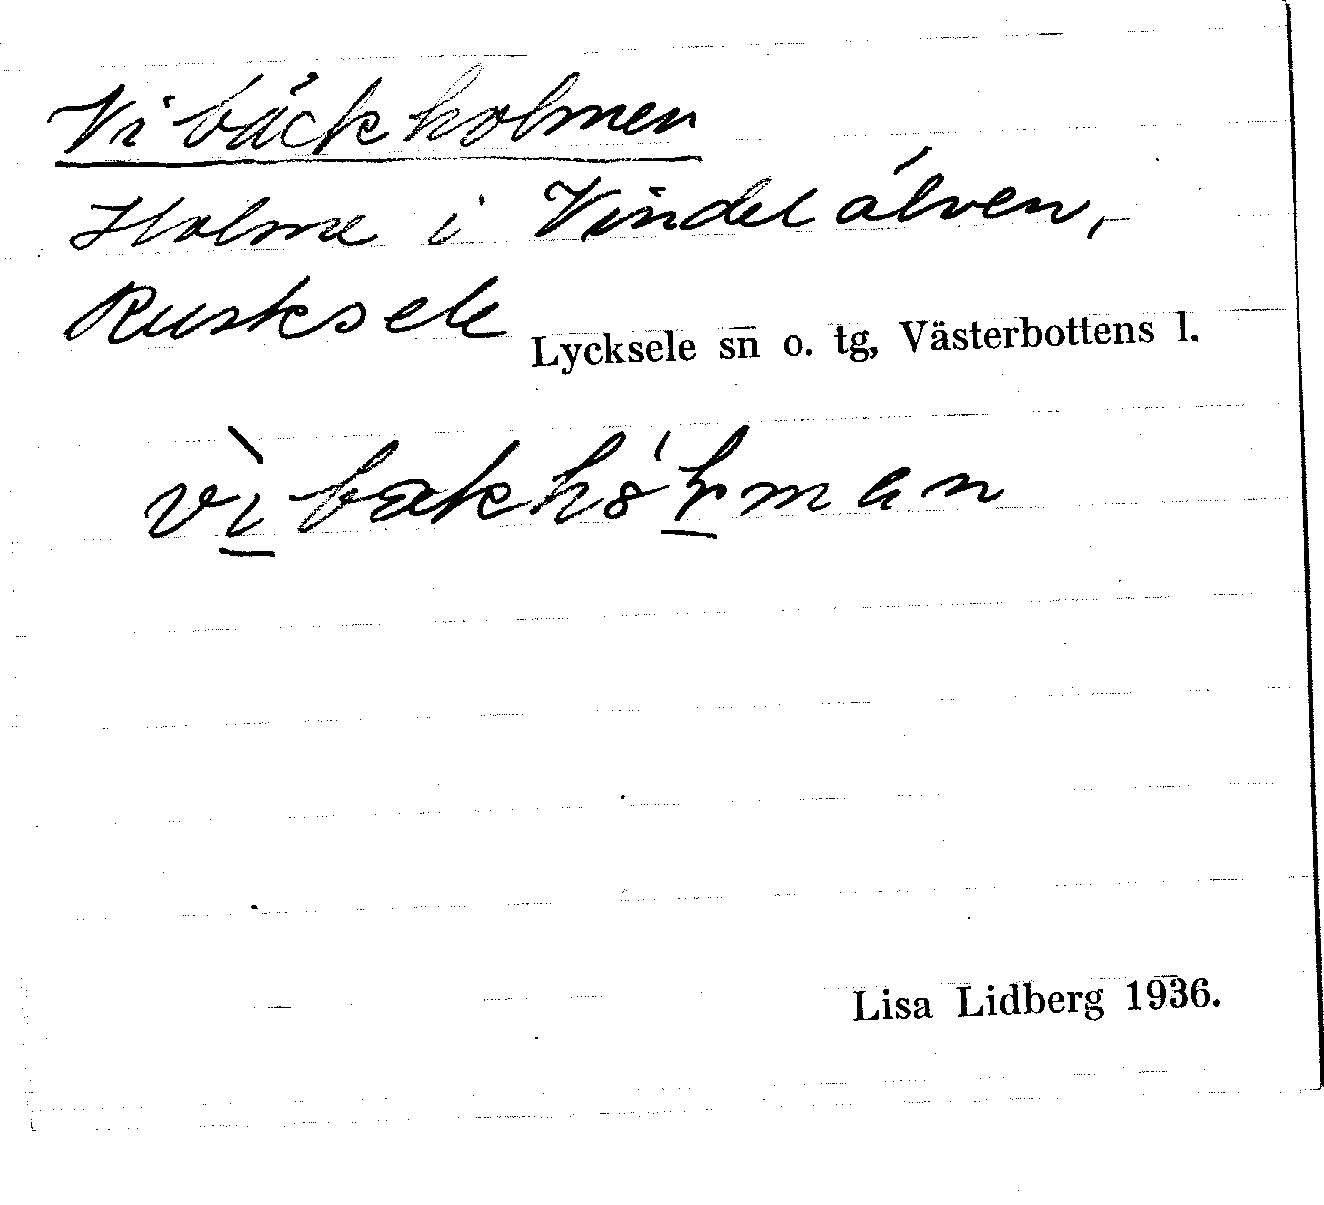 Vibäckholmen
Holme i Vindelälven,
Rusksele
Lycksele sn o. tg, Västerbottens l.
Lisa Lidberg 1936.